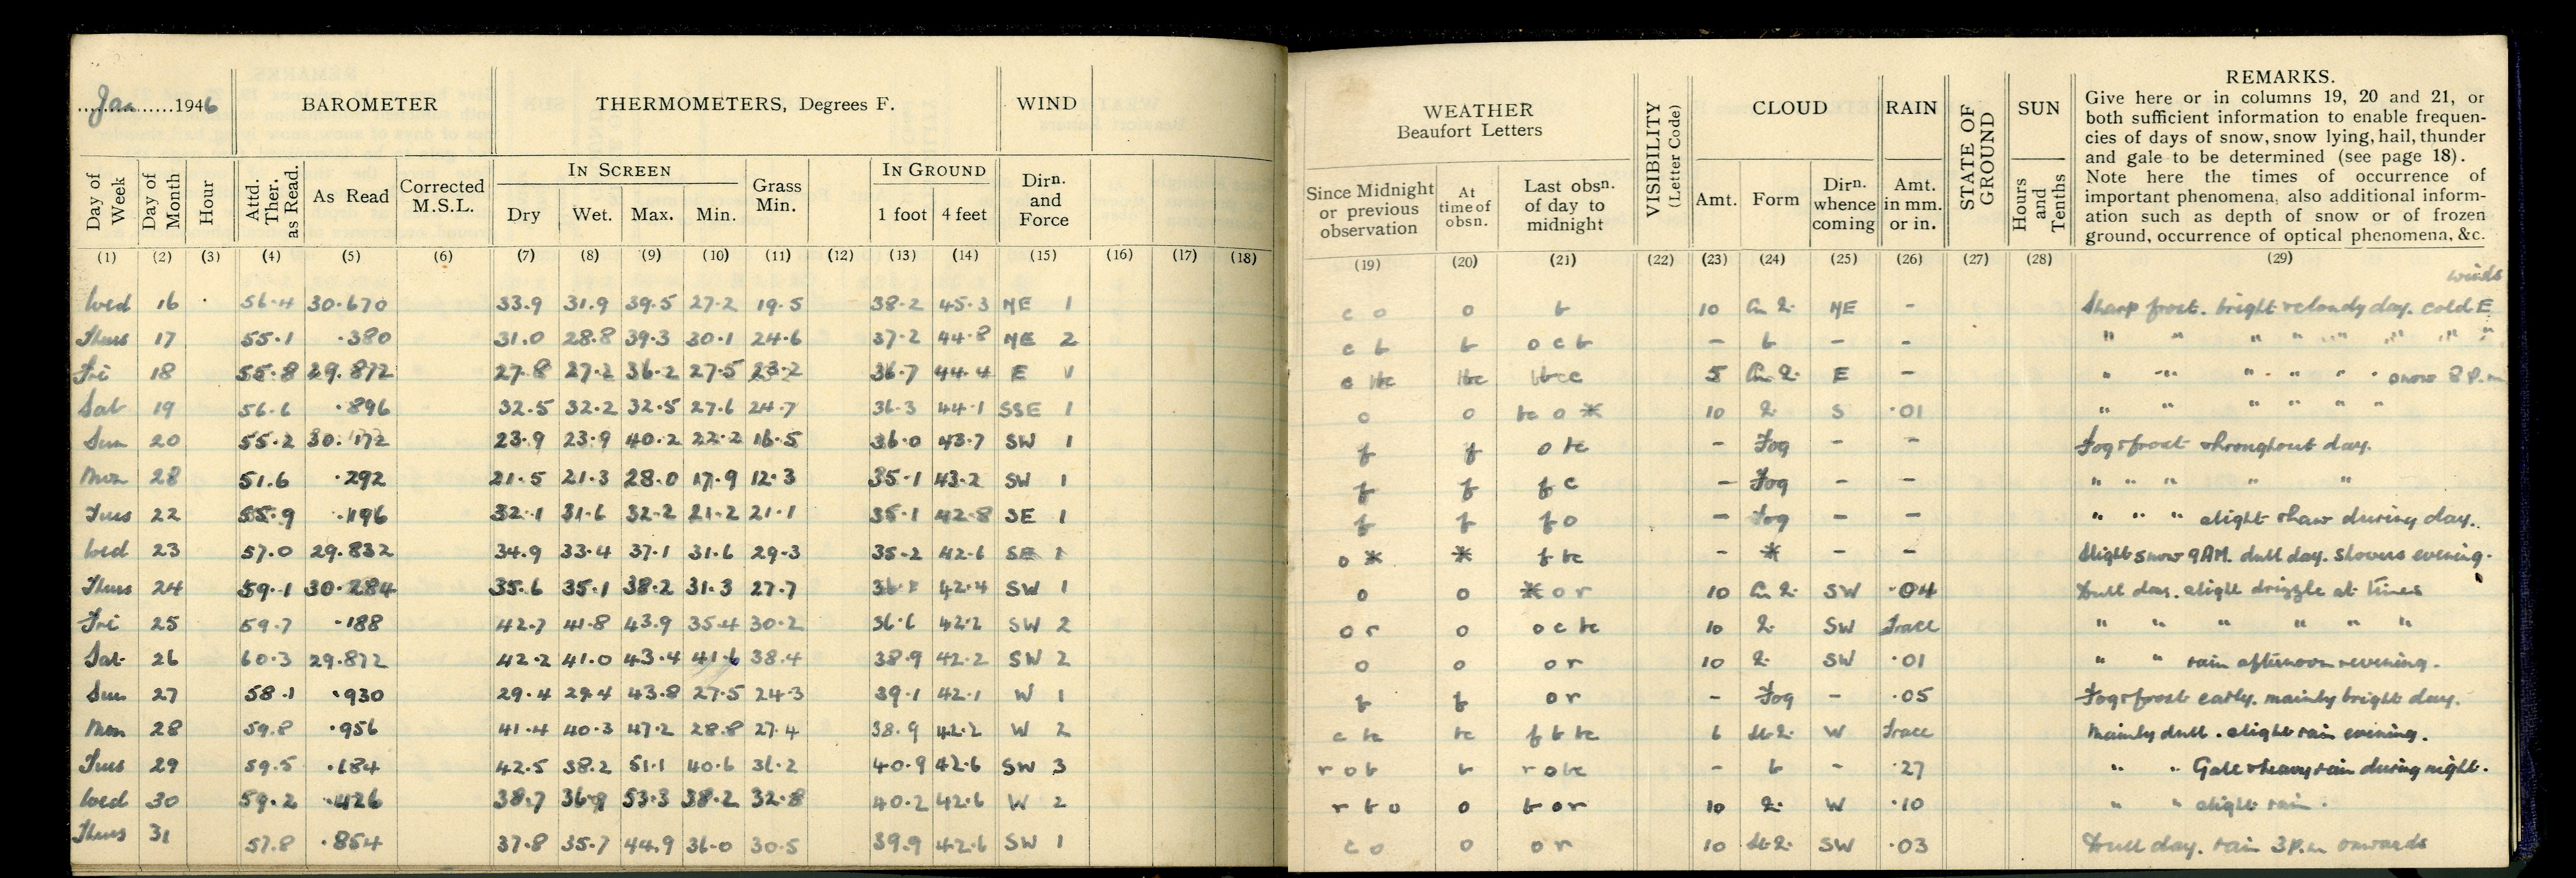 Jan 1946 BAROMETER THERMOMETERS, Degrees F. WIND WEATHER Beaufort Letters VISIBILITY (Letter Code) CLOUD RAIN STATE OF GROUND SUN REMARKS.
Give here or in columns 19, 20 and 21, or
both sufficient information to enable frequen-
cies of days of snow, snow lying, hail, thunder
and gale to be determined (see page 18).
Note here the times of occurrence of
important phenomena, also additional inform-
ation such as depth of snow or of frozen
ground, occurrence of optical phenomena, &c.
IN SCREEN IN GROUND
Day of Week Day of Month Hour Attd. Ther. as Read. As Read Corrected M.S.L. Dry Wet. Max. Min. Grass Min. 1 foot 4 feet Dirn. and Force Since Midnight or previous observation At time of obsn. Last obsn. of day to midnight Amt. Form Dirn. whence coming Amt. in mm. or in. Hours and Tenths
(1) (2) (3) (4) (5) (6) (7) (8) (9) (10) (11) (12) (13) (14) (15) (16) (17) (18) (19) (20) (21) (22) (23) (24) (25) (26) (27) (28) (29)
Wed 16 56.4 30.670 33.9 31.9 39.5 27.2 19.5 38.2 45.3 NE 1 c o o b 10 NE - Sharp frost. bright & cloudy day. cold E winds
Thurs 17 55.1 .380 31.0 28.8 39.3 30.1 24.6 37.2 44.8 NE 2 c b b o c b - b - - " " " " " " " "
Fri 18 55.8 29.872 27.8 27.2 36.2 27.5 23.2 36.7 44.4 E 1 c bc bc bcc 5 E - " " " " " " snow 8 P.m
Sat 19 56.6 .896 32.5 32.2 32.5 27.6 24.7 36.3 44.1 SSE 1 o o bc o * 10 S .01 " " " " " "
Sun 20 55.2 30.172 23.9 23.9 40.2 22.2 16.5 36.0 43.7 SW 1 f f o bc - Fog - - Fog & frost throughout day.
Mon 28 51.6 .292 21.5 21.3 28.0 17.9 12.3 35.1 43.2 SW 1 f f f c - Fog - - " " " " "
Tues 22 55.9 .196 32.1 31.6 32.2 21.2 21.1 35.1 42.8 SE 1 f f f o - Fog - - " " " slight thaw during day.
Wed 23 57.0 29.832 34.9 33.4 37.1 31.6 29.3 35.2 42.6 SE 1 o * * f bc - * - - Slight snow 9AM. dull day. Showers evening.
Thurs 24 59.1 30.284 35.6 35.1 38.2 31.3 27.7 42.4 SW 1 o o * o r 10 SW .04 Dull day. slight drizzle at times
Fri 25 59.7 .188 42.7 41.8 43.9 35.4 30.2 36.6 42.2 SW 2 o r o o c bc 10 SW Trace " " " " " "
Sat 26 60.3 29.872 42.2 41.0 43.4 41.6 38.4 38.9 42.2 SW 2 o o o r 10 SW .01 " " rain afternoon & evening.
Sun 27 58.1 .930 29.4 29.4 43.8 27.5 24.3 39.1 42.1 W 1 f f o r - Fog - .05 Fog & frost early. mainly bright day.
Mon 28 59.8 .956 41.4 40.3 47.2 28.8 27.4 38.9 42.2 W 2 c bc bc f b bc 6 W Trace Mainly dull. slight rain evening.
Tues 29 59.5 .184 42.5 38.2 51.1 40.6 31.2 40.9 42.6 SW 3 r o b b r o bc - b - .27 " " Gale & heavy rain during night.
Wed 30 59.2 .426 38.7 36.9 53.3 38.2 32.8 40.2 42.6 W 2 r b o o b o r 10 W .10 " " slight rain.
Thurs 31 57.8 .854 37.8 35.7 44.9 36.0 30.5 39.9 42.6 SW 1 c o o o r 10 SW .03 Dull day. rain 3 P.m onwards